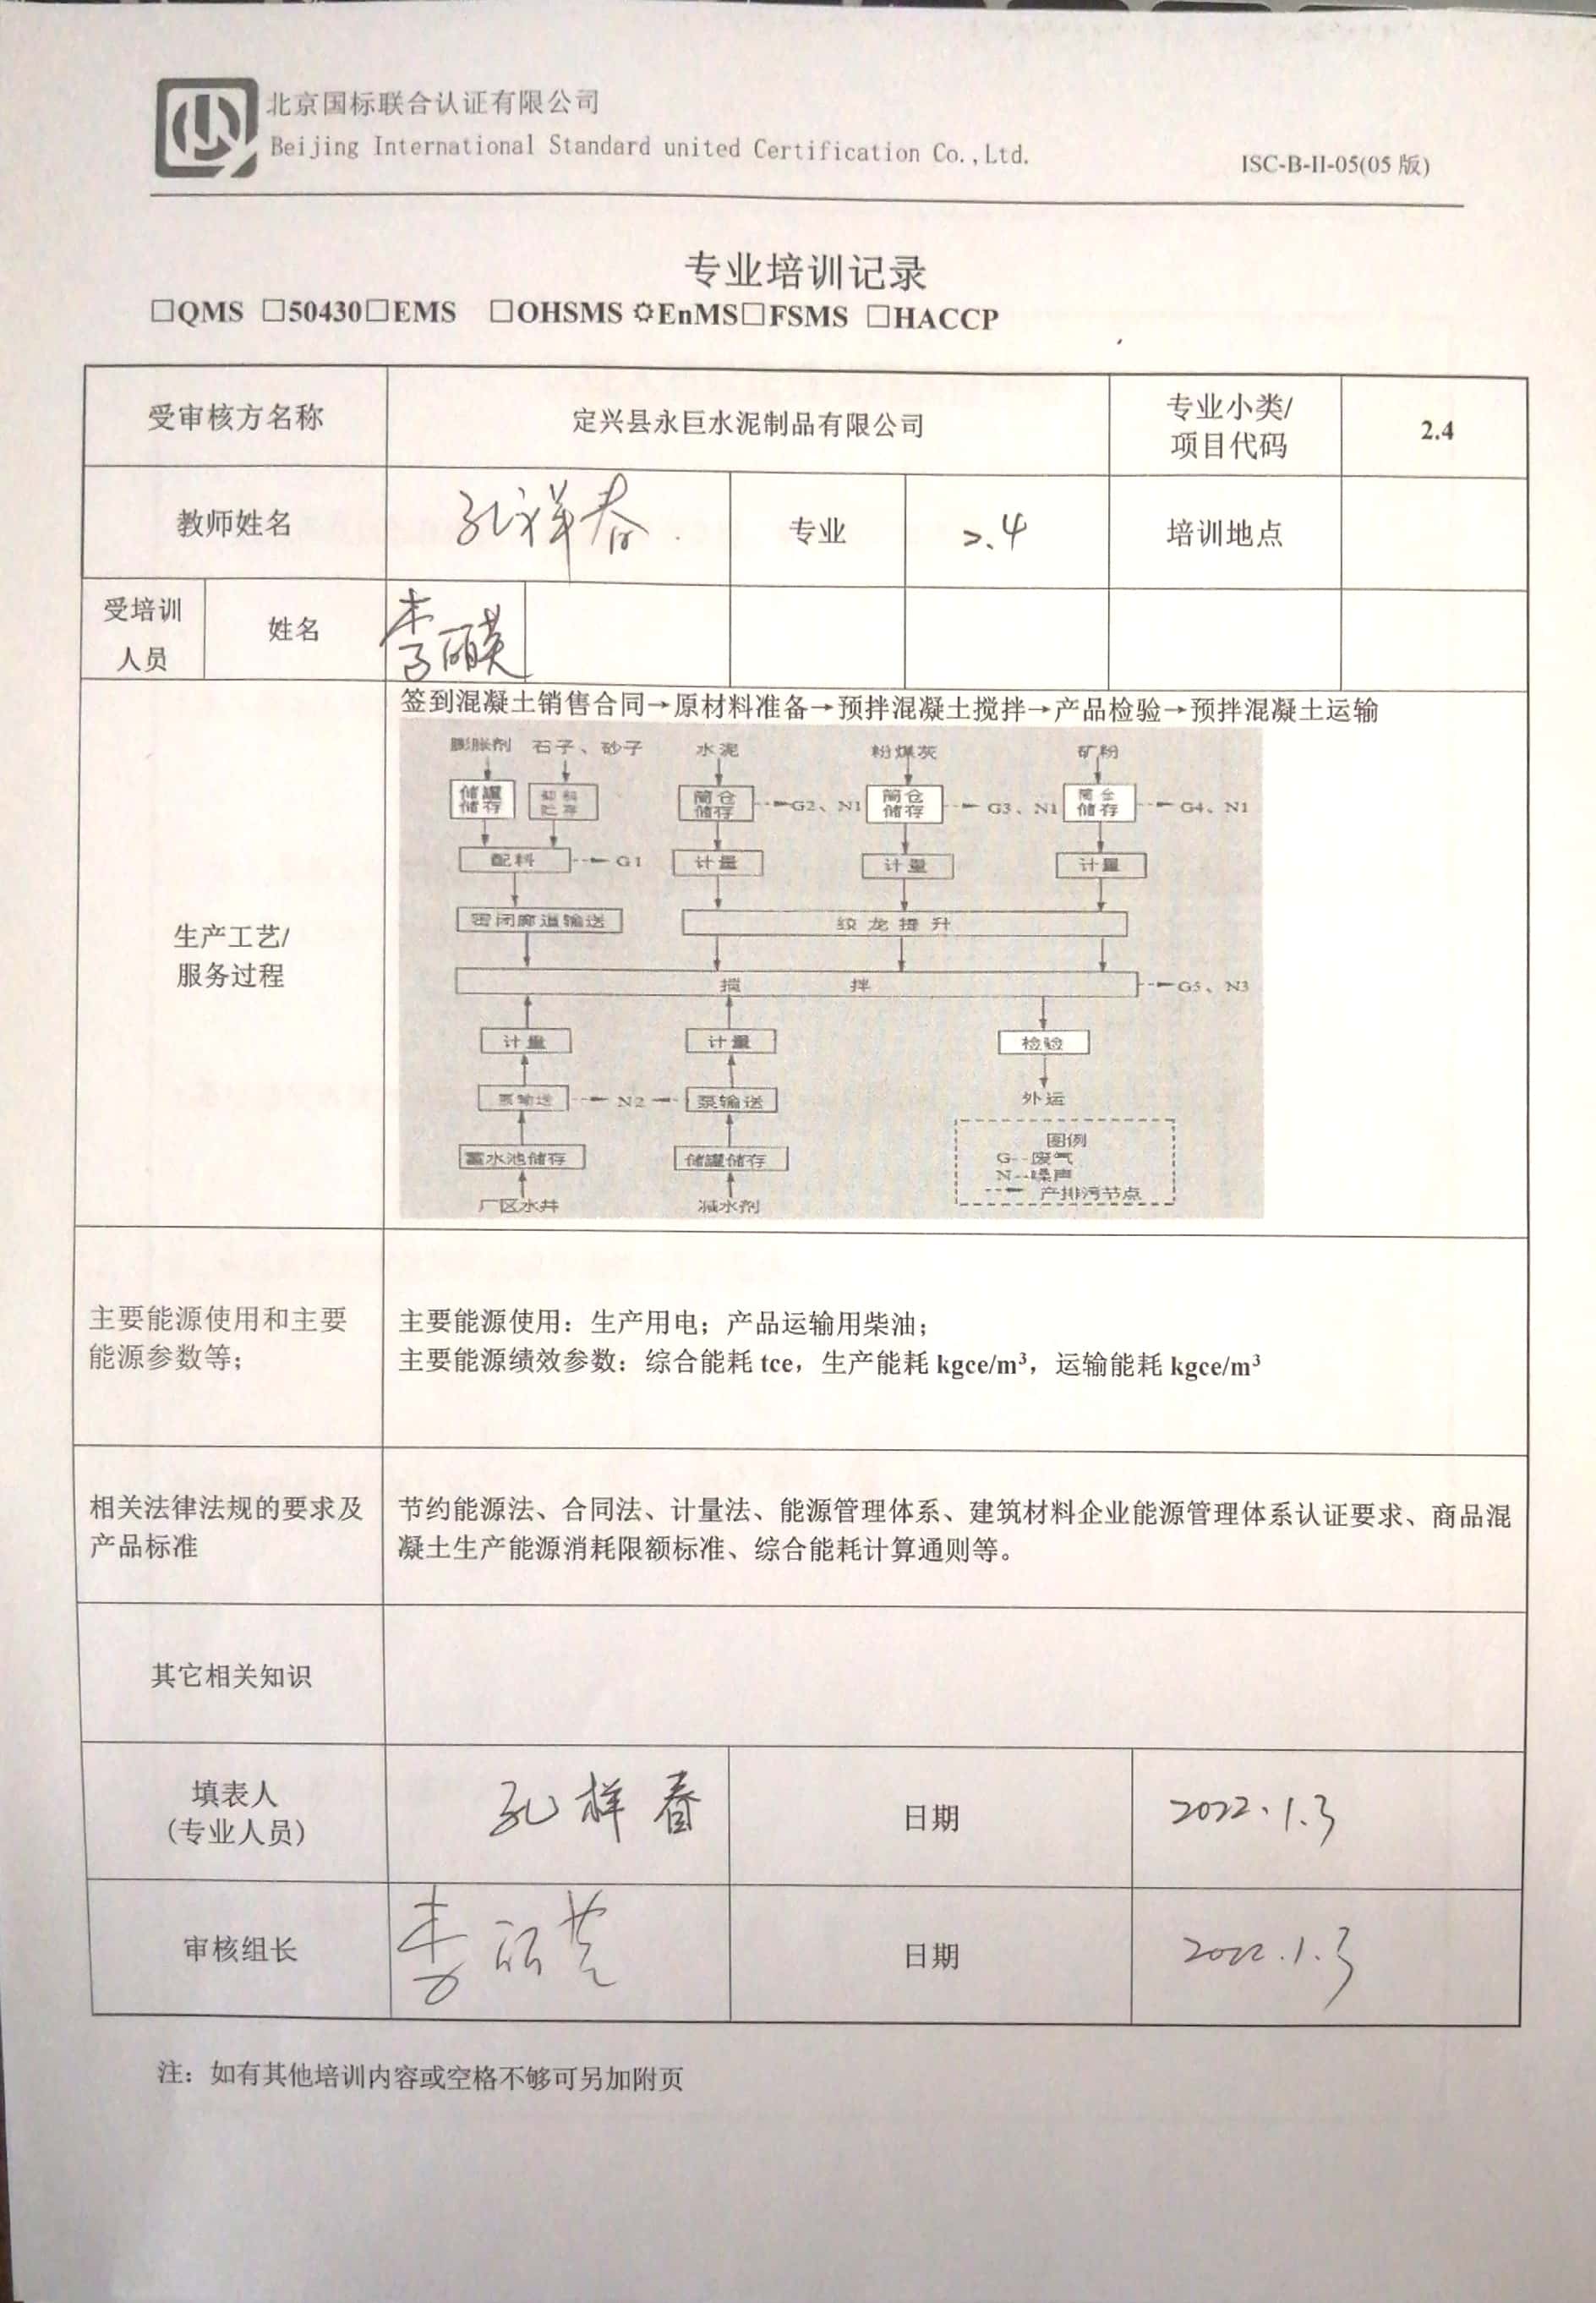 北京国标联合认证有限公司
Beijing International Standard united Certification Co.,Ltd.
ISC-B-II-05(05 版)
专业培训记录
□QMS □50430□EMS □OHSMS ✡EnMS□FSMS □HACCP
受审核方名称
定兴县永巨水泥制品有限公司
专业小类/
项目代码
2.4
教师姓名
孔祥春
专业
2.4
培训地点
受培训
人员
姓名
李丽英
生产工艺/
服务过程
签到混凝土销售合同→原材料准备→预拌混凝土搅拌→产品检验→预拌混凝土运输
膨胀剂 石子、砂子 水泥 粉煤灰 矿粉
储罐
储存
筒仓
储存
G2、N1
筒仓
储存
G3、N1
筒仓
储存
G4、N1
配料
G1
计量
计量
计量
密闭廊道输送
绞龙提升
搅拌
G5、N3
计量
计量
检验
泵输送
N2
泵输送
外运
蓄水池储存
储罐储存
厂区水井
减水剂
图例
G--废气
N--噪声
产排污节点
主要能源使用和主要
能源参数等;
主要能源使用：生产用电；产品运输用柴油；
主要能源绩效参数：综合能耗 tce，生产能耗 kgce/m³，运输能耗 kgce/m³
相关法律法规的要求及
产品标准
节约能源法、合同法、计量法、能源管理体系、建筑材料企业能源管理体系认证要求、商品混
凝土生产能源消耗限额标准、综合能耗计算通则等。
其它相关知识
填表人
（专业人员）
孔祥春
日期
2022.1.3
审核组长
李丽英
日期
2022.1.3
注：如有其他培训内容或空格不够可另加附页